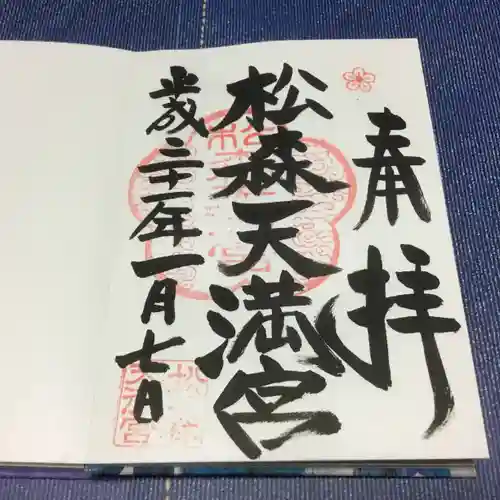 奉拝
松森天満宮
歳三十一年一月七日